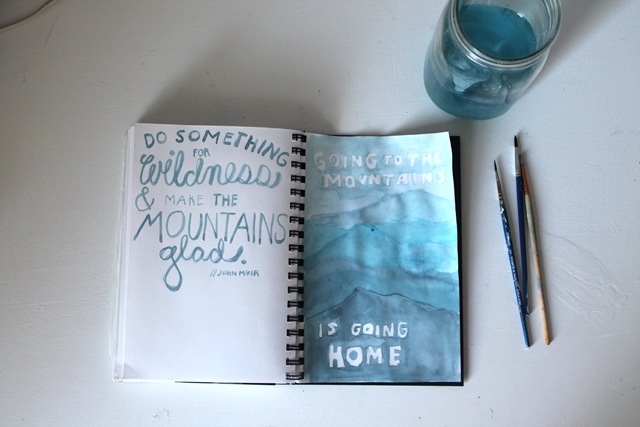 DO SOMETHING
FOR
Wildness
& MAKE THE
MOUNTAINS
glad.
//JOHN MUIR
GOING TO THE
MOUNTAINS
IS GOING
HOME